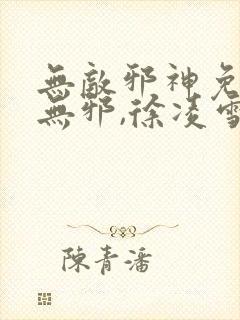 無敵邪神免
無邪,徐凌雪
陳青潘